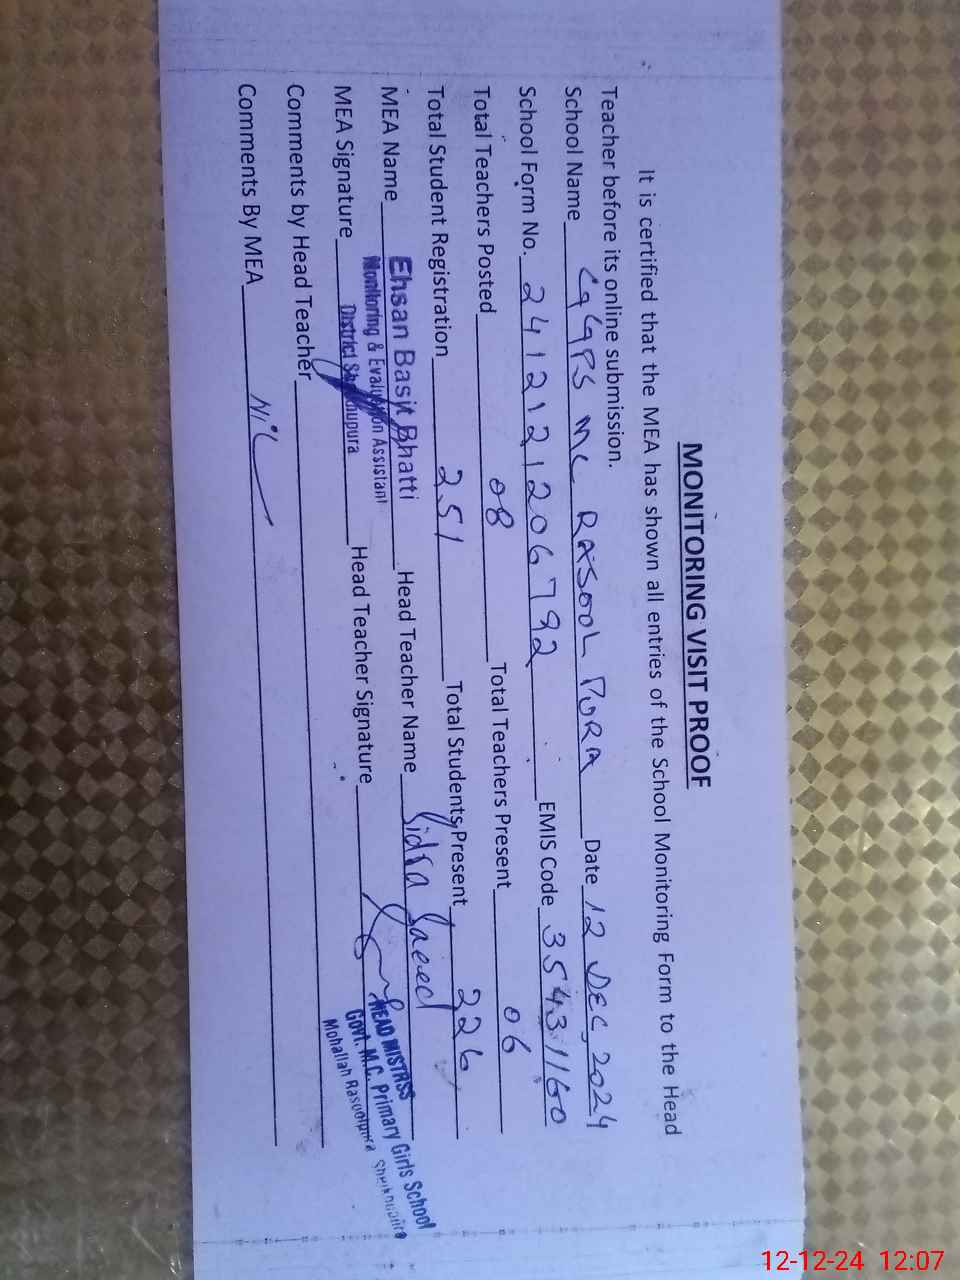 MONITORING VISIT PROOF
It is certified that the MEA has shown all entries of the School Monitoring Form to the Head
Teacher before its online submission.
School Name GGPS MC RASOOL PURA Date 12 DEC, 2024
School Form No. 2412121206792 EMIS Code 35431160
Total Teachers Posted 08 Total Teachers Present 06
Total Student Registration 251 Total Students Present 226
MEA Name Ehsan Basit Bhatti Head Teacher Name Sidra Saeed
Monitoring & Evaluation Assistant
MEA Signature District Sheikhupura Head Teacher Signature
HEAD MISTRSS
Govt. M.C. Primary Girls School
Mohallah Rasoolpura Sheikhupura
Comments by Head Teacher
Comments By MEA Nil
12-12-24 12:07